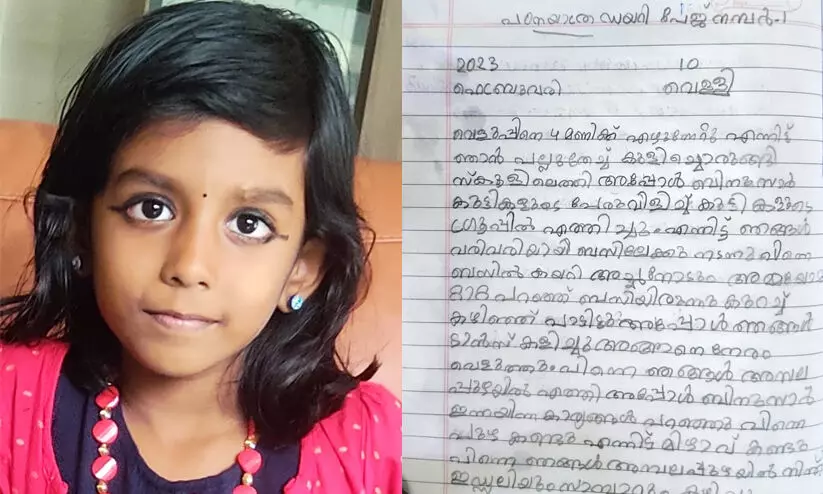 പഠനയാത്ര ഡയറി പേജ് നമ്പർ-1
2023 10
ഫെബ്രുവരി വെള്ളി
വെളുപ്പിനെ 4 മണിക്ക് എഴുന്നേറ്റു എന്നിട്ട്
ഞാൻ പല്ലുതേച്ച് കുളിച്ചൊരുങ്ങി
സ്കൂളിലെത്തി അപ്പോൾ ബിനുസാർ
കുട്ടികളുടെ പേരുവിളിച്ച് കുട്ടികളുടെ
ഗ്രൂപ്പിൽ എത്തിച്ചു എന്നിട്ട് ഞങ്ങൾ
വരിവരിയായി ബസിലേക്കു നടന്നു പിന്നെ
ബസിൽ കയറി അച്ഛനോടും
പറഞ്ഞ് ബസിയിരുന്നു കുറച്ച്
കഴിഞ്ഞ് പാട്ടിട്ടു അപ്പോൾ ഞങ്ങൾ
ഡാൻസ് കളിച്ചു അങ്ങനെ നേരം
വെളുത്തു പിന്നെ ഞങ്ങൾ അമ്പല
പുഴയിൽ എത്തി അപ്പോൾ ബിനുസാർ
കാര്യങ്ങൾ പറഞ്ഞു പിന്നെ
പുഴ കണ്ടു എന്നിട്ട് മിഴാവ് കണ്ടു
പിന്നെ ഞങ്ങൾ അമ്പലപുഴയിൽ നിന്ന്
ഇഡ്ഡലിയും സാമ്പാറും